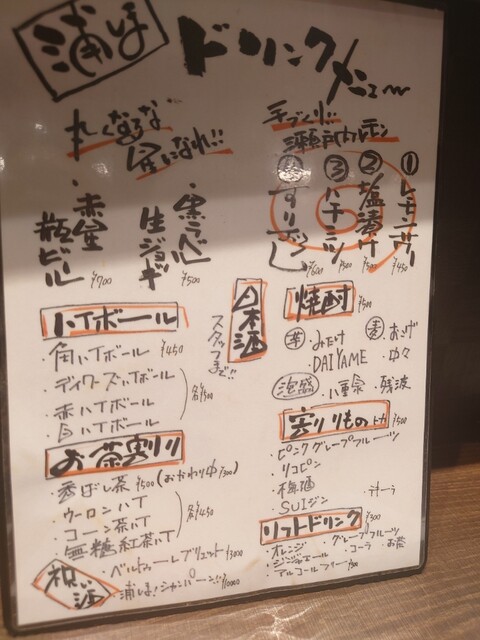 浦しま
ドリンクメニュー
丸くなるな
星になれ!!
手づくり!!
瀬戸内レモン
① レモンサワー ¥450
② 塩漬け ¥500
③ ハチミツ ¥500
すりおろし ¥600
・黒ラベル
生ジョッキ ¥500
・赤星
瓶ビール ¥700
日本酒
スタッフまで!!
ハイボール
角ハイボール ¥450
・デュワーズハイボール
・赤ハイボール
・白ハイボール
各¥500
焼酎 ¥500
芋 みたけ
DAIYAME
麦 おこげ
中々
泡盛 ・八重泉 ・残波
お茶割り
・香ばし茶 ¥500(おかわり中¥300)
・ウーロンハイ
・コーン茶ハイ
・無糖紅茶ハイ
各¥450
割りもの ¥500
・ピンクグレープフルーツ
・リコピン
・梅酒
・SUIジン
ソフトドリンク ¥300
・オレンジ ・グレープフルーツ
・ジンジャエール ・コーラ ・お茶
・アルコールフリー
祝い酒
・浦しま!シャンパーン!! ¥10000